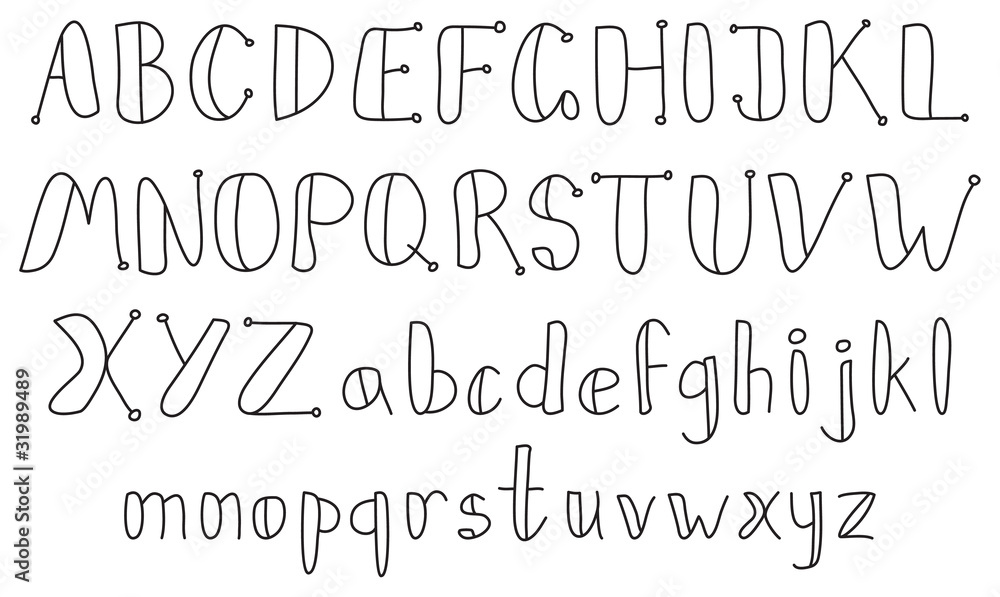 ABCDEFGHIJKL
MNOPQRSTUVW
XYZ abcdefghijkl
mnopqrstuvwxyz
Adobe Stock | #31989489